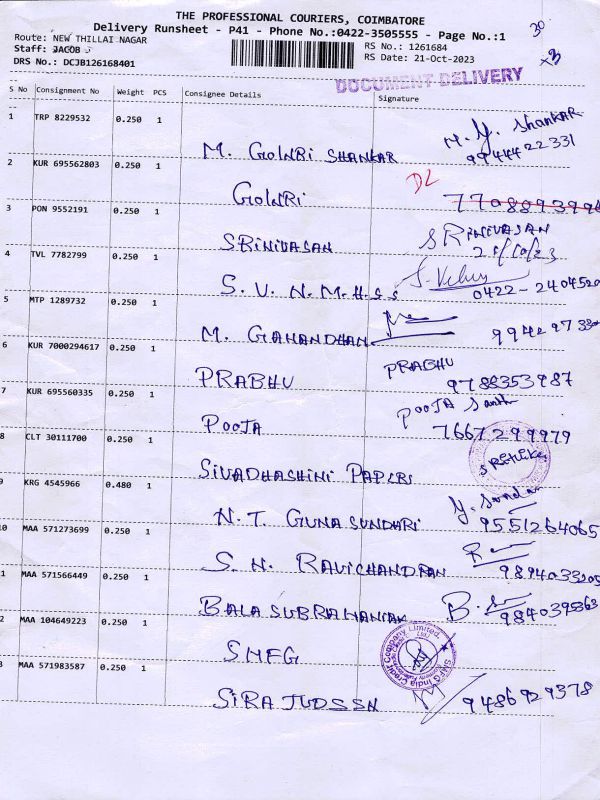 THE PROFESSIONAL COURIERS, COIMBATORE
Delivery Runsheet - P41 - Phone No.:0422-3505555 - Page No.:1
30
Route: NEW THILLAI NAGAR
RS No.: 1261684
Staff: JACOB S
RS Date: 21-Oct-2023
DRS No.: DCJB126168401
DOCUMENT DELIVERY
S No Consignment No Weight PCS Consignee Details Signature
1 TRP 8229532 0.250 1
M. Y. Shankar
M. GOWRI SHANKAR 9944422331
2 KUR 695562803 0.250 1
DL
GOWRI
3 PON 9552191 0.250 1
SRINIVASAN
SRINIVASAN
4 TVL 7782799 0.250 1
S. V. N. M. H. S. S 0422-2404520
5 MTP 1289732 0.250 1
M. GAHANDHAN
6 KUR 7000294617 0.250 1
PRABHU
PRABHU 9788353987
7 KUR 695560335 0.250 1
POOJA
POOJA 7667299979
8 CLT 30111700 0.250 1
SIVADHASHINI PAPERI
9 KRG 4545966 0.480 1
N. T. GUNA SUNDHRI 9551264065
10 MAA 571273699 0.250 1
S. N. RAVICHANDRAN 9894033205
1 MAA 571566449 0.250 1
BALA SUBRAMANIAN B. 9840395363
2 MAA 104649223 0.250 1
SMFG
SMFG India Credit Company Limited
3 MAA 571983587 0.250 1
SIRAJUDSSN 9486929378